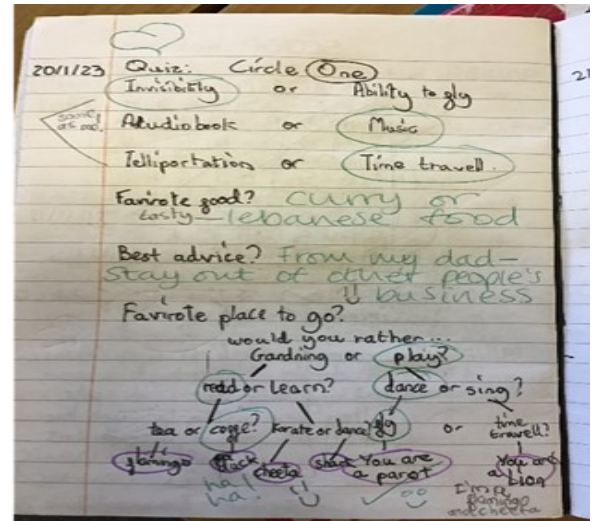 20/1/23 Quiz: Circle One
Invisibility or Ability to gly
same as me! Atudiobook or Music
Telliportation or Time travell.
Favirote good? curry or
tasty lebanese food
Best advice? From my dad-
stay out of other people's
business
Favirote place to go?
would you rather...
Gardning or play?
read or learn? dance or sing?
tea or coffe? karate or dance? gly or time travell?
flamingo duck cheeta shark You are a parot You are a Lion
ha! ha!
I'm a flamingo and cheeta